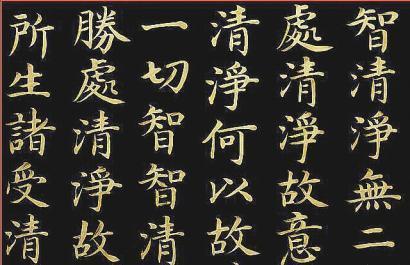 智清淨無二
處清淨故意
清淨何以故
一切智智清
勝處清淨故
所生諸受清